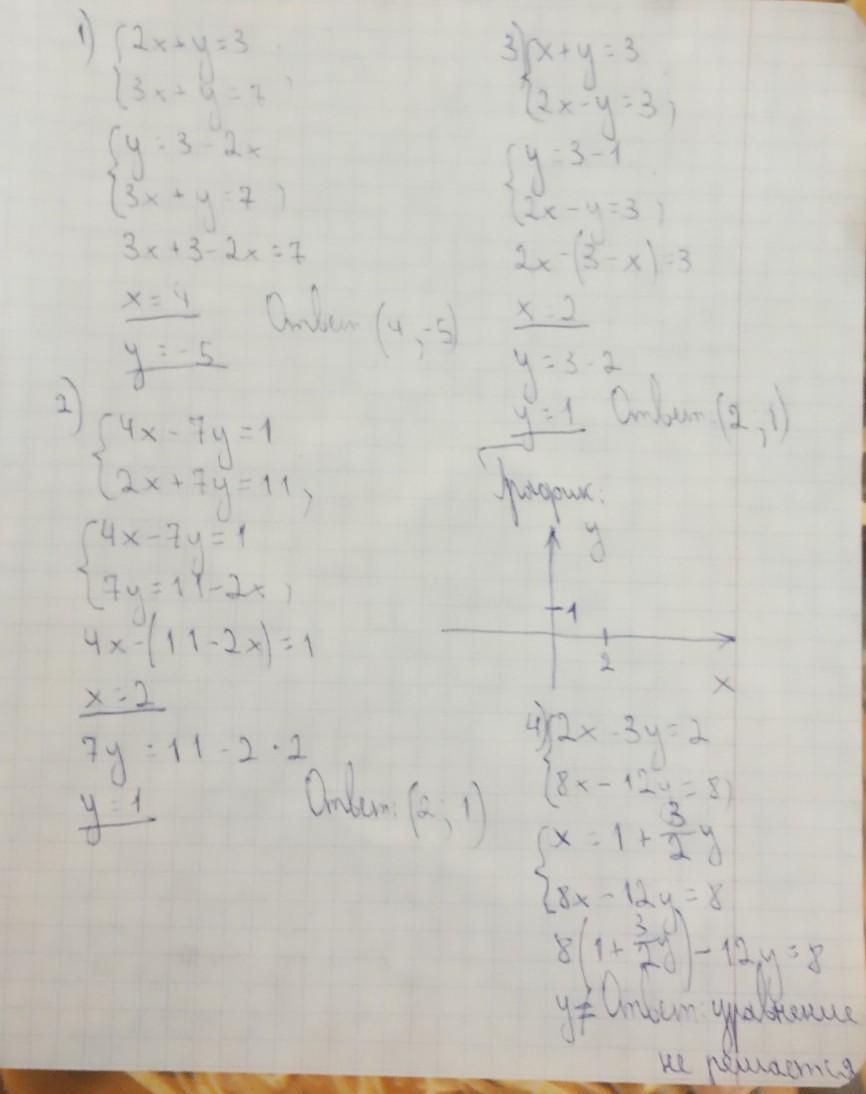 1) { 2x + y = 3
{ 3x + y = 7 ;
{ y = 3 - 2x
{ 3x + y = 7 ;
3x + 3 - 2x = 7
x = 4
y = -5
Ответ: (4 ; -5)
2)
{ 4x - 7y = 1
{ 2x + 7y = 11 ;
{ 4x - 7y = 1
{ 7y = 11 - 2x ;
4x - (11 - 2x) = 1
x = 2
7y = 11 - 2 · 2
y = 1
Ответ: (2 ; 1)
3) { x + y = 3
{ 2x - y = 3 ;
{ y = 3 - 1
{ 2x - y = 3 ;
2x - (3 - x) = 3
x = 2
y = 3 - 2
y = 1 Ответ: (2 ; 1)
График:
y
1
2
x
4) { 2x - 3y = 2
{ 8x - 12y = 8 ;
{ x = 1 + 3/2 y
{ 8x - 12y = 8
8(1 + 3/2 y) - 12y = 8
y ≠ Ответ: уравнение
не решается